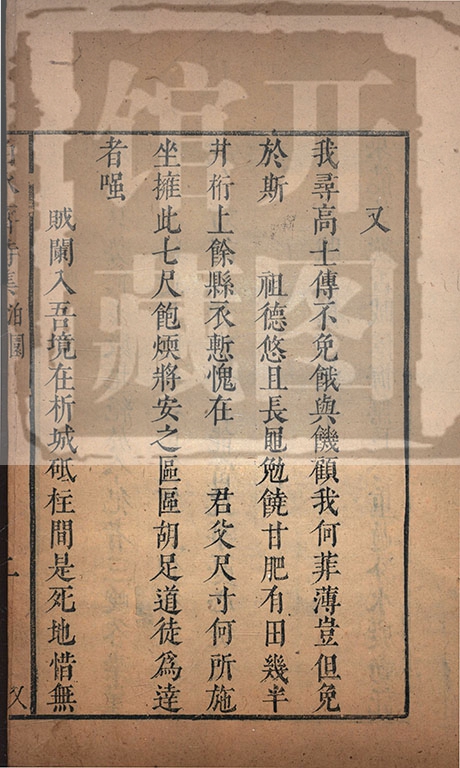 又
我尋高士傳不免餓與饑顧我何菲薄豈但免
於斯　祖德悠且長黽勉饒甘肥有田幾半
井桁上餘縣衣慙愧在　君父尺寸何所施
坐擁此七尺飽煗將安之區區胡足道徒為達
者嗤
賊闌入吾境在析城砥柱間是死地惜無
开馆
图藏